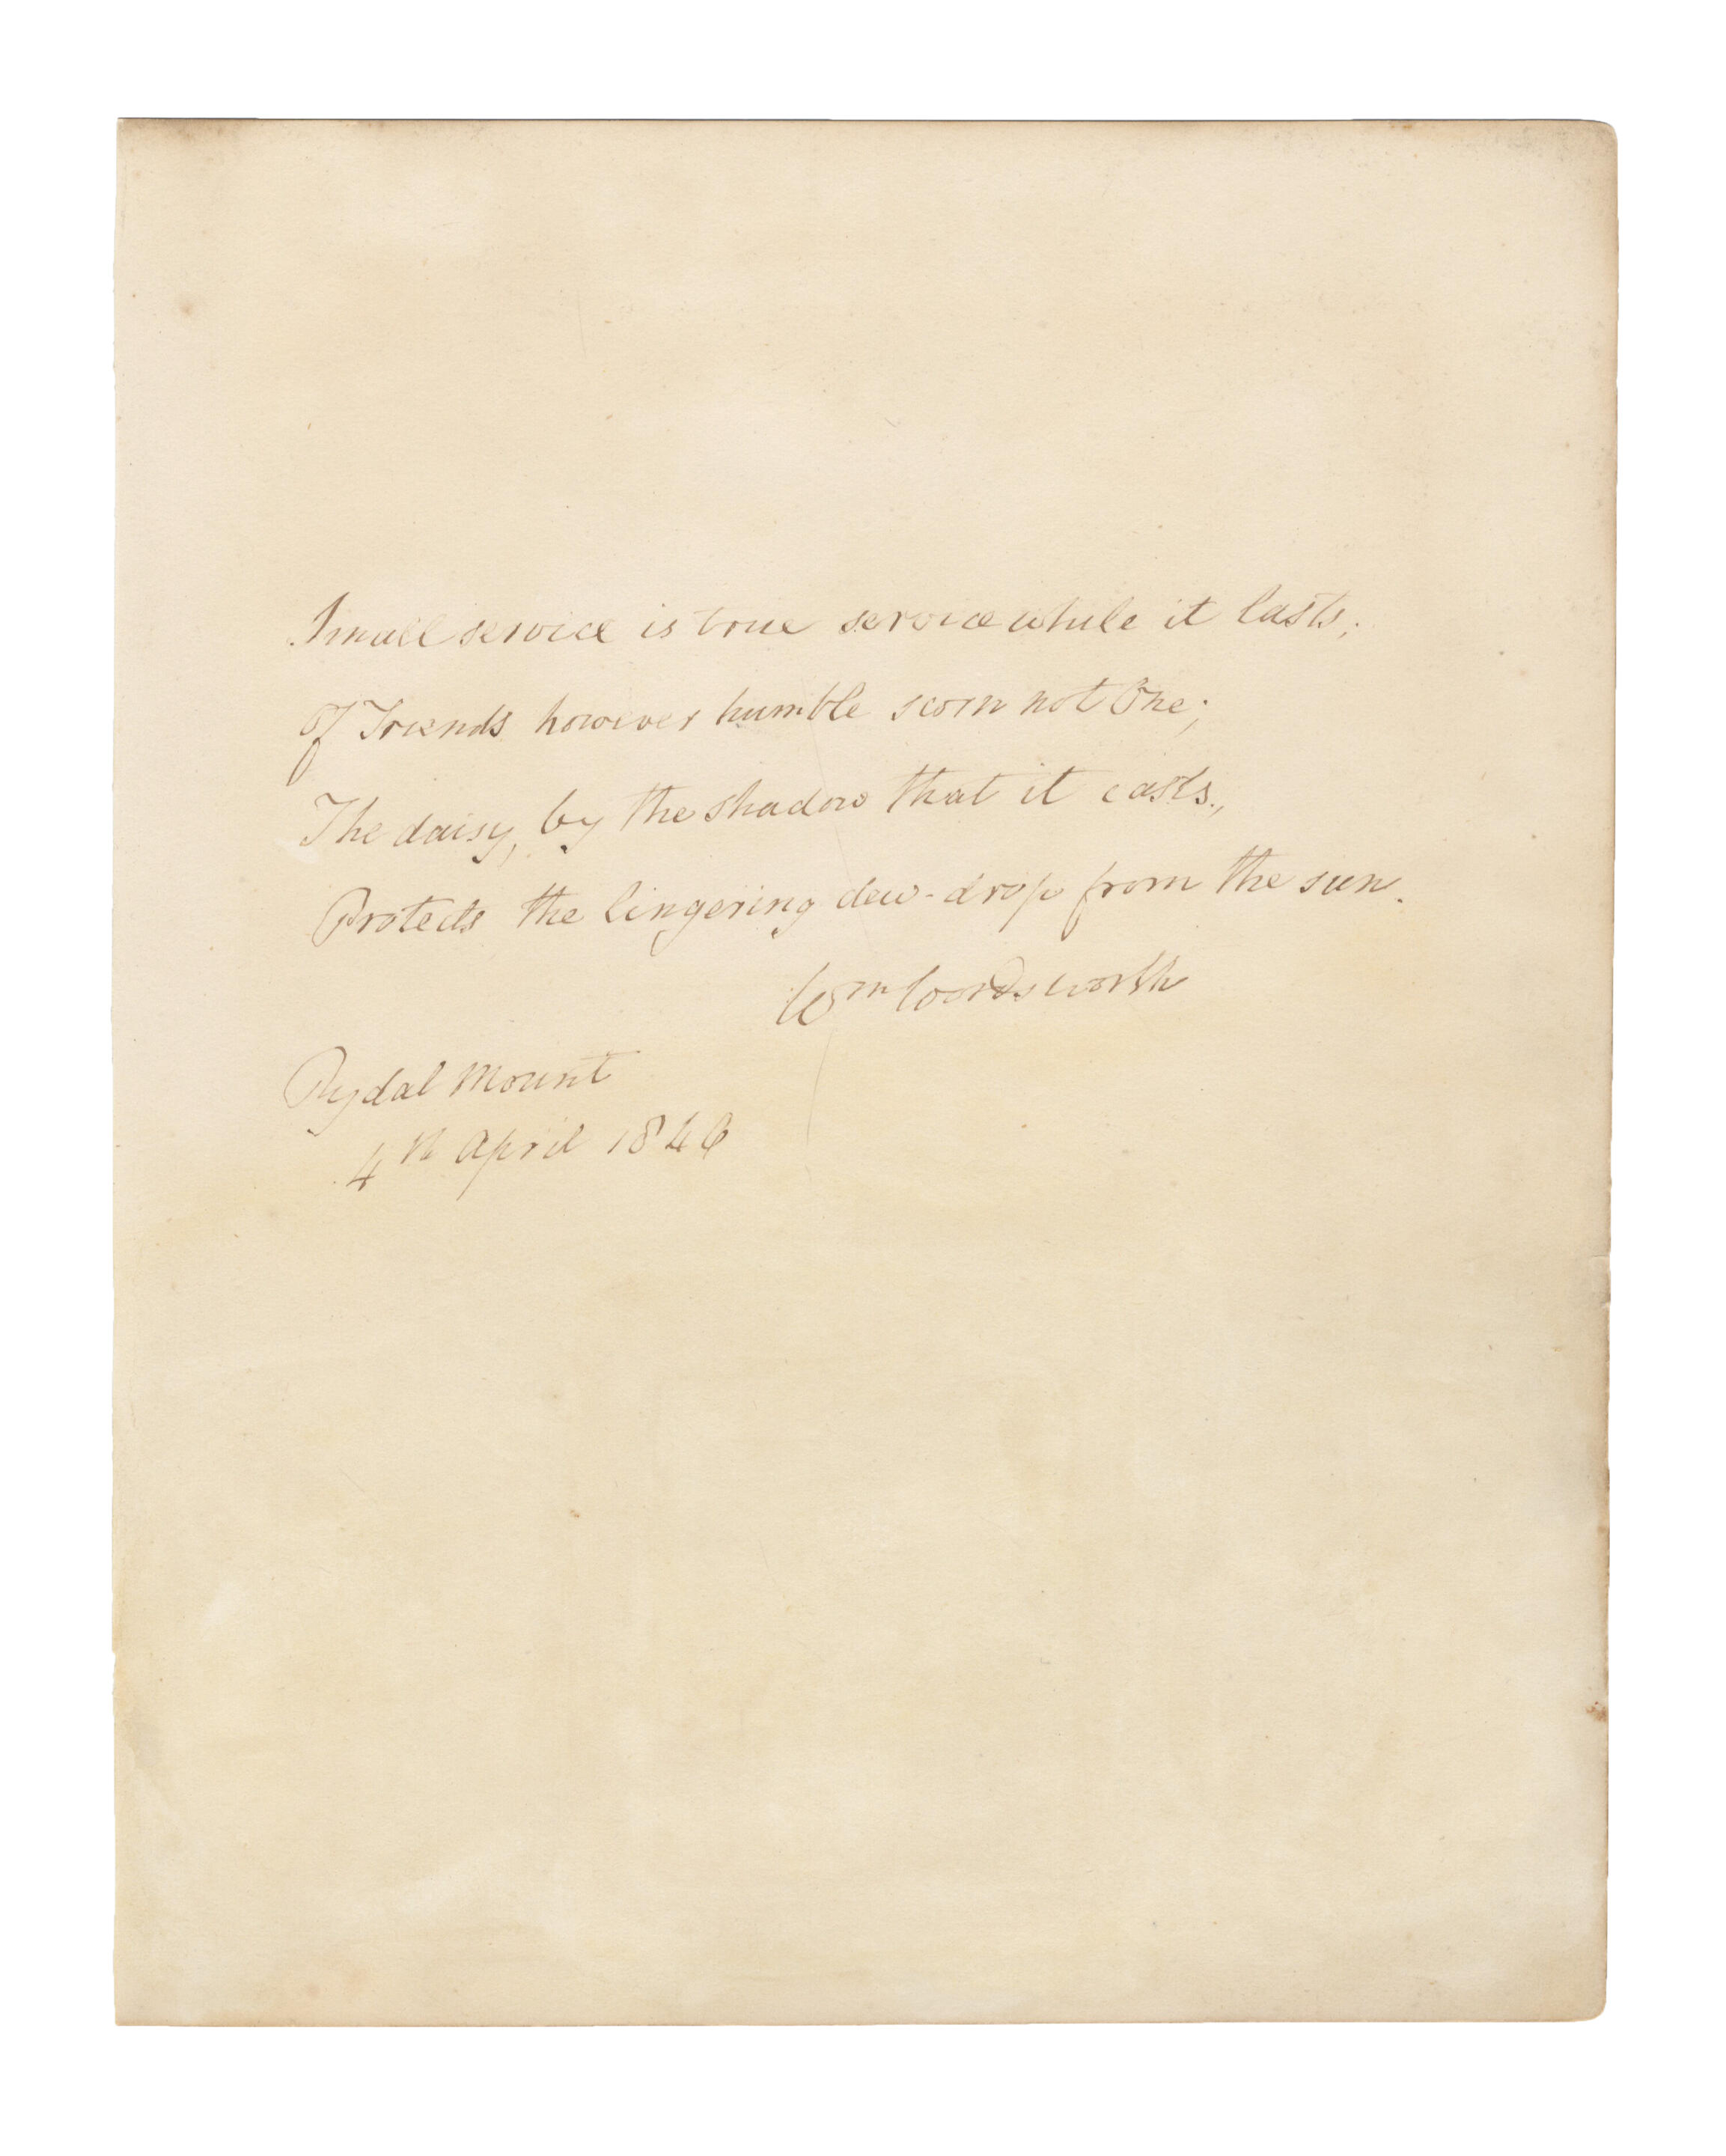 Small service is true service while it lasts;
Of Friends however humble scorn not One;
The daisy, by the shadow that it casts,
Protects the lingering dew-drop from the sun.
Wm Wordsworth
Rydal Mount
4th April 1846